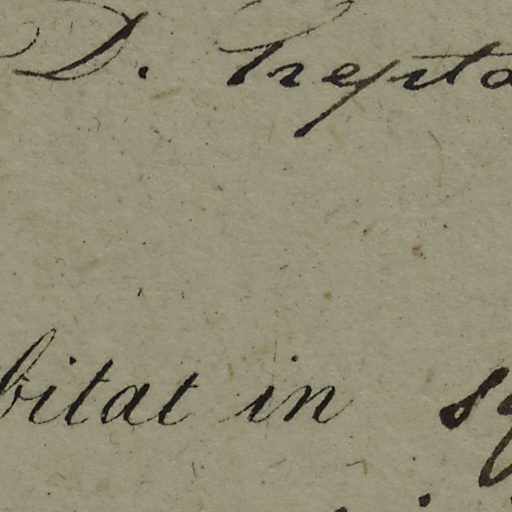 D. Trepta
bitat in sy